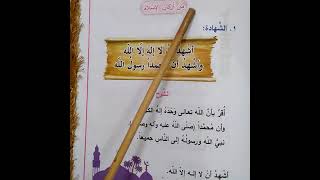 من أركان الإسلام
١. الشَّهادة:
أَشْهَدُ أَنْ لا إلهَ إلّا اللّه
وأَشْهَدُ أنَّ مُحمّداً رسولُ اللّه
الشرح
أُقِرُّ بأنَّ اللّهَ تعالى وَحْدَهُ إلهُ
وأن مُحمّداً (صلى الله عليه وآله وسلم)
نبيُّ اللّه ورسولُهُ إلى النّاسِ جَميعاً.
أَشْهَدُ أنْ لا إلهَ إلاّ اللّه.